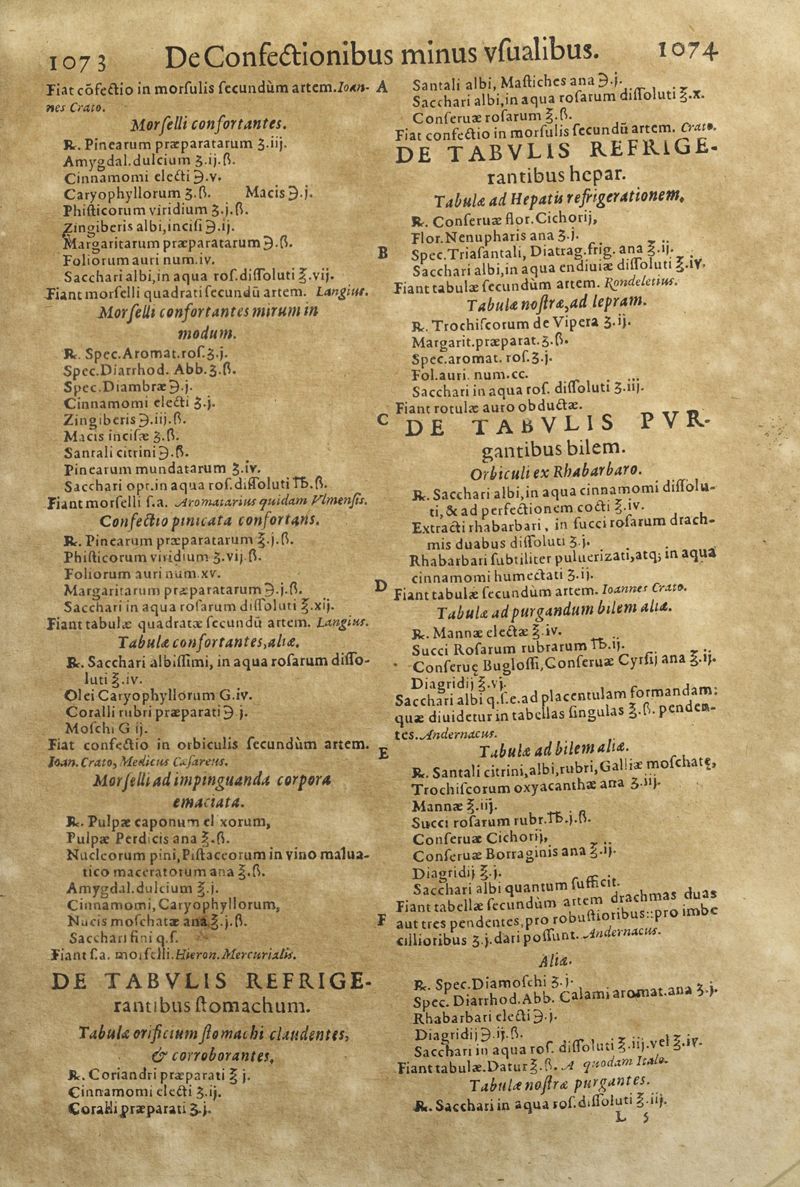 1073 De Confectionibus minus vſualibus. 1074
Fiat cōfectio in morſulis ſecundùm artem. Ioan-
nes Crato.
Morſelli confortantes.
℞. Pinearum præparatarum ʒ.iij.
Amygdal.dulcium ʒ.ij.ß.
Cinnamomi electi ℈.v.
Caryophyllorum ʒ.ß. Macis ℈.j.
Phiſticorum viridium ʒ.j.ß.
Zingiberis albi,inciſi ℈.ij.
Margaritarum præparatarum ℈.ß.
Foliorum auri num.iv.
Sacchari albi,in aqua roſ.diſſoluti ℥.vij.
Fiant morſelli quadrati ſecundū artem. Langius.
Morſelli confortantes mirum in
modum.
℞. Spec.Aromat.roſ.ʒ.j.
Spec.Diarrhod. Abb.ʒ.ß.
Spec.Diambræ ℈.j.
Cinnamomi electi ʒ.j.
Zingiberis ℈.iij.ß.
Macis inciſæ ʒ.ß.
Santali citrini ℈.ß.
Pinearum mundatarum ʒ.iv.
Sacchari opt.in aqua roſ.diſſoluti ℔.ß.
Fiant morſelli ſ.a. Aromatarius quidam Vlmenſis.
Confectio pineata confortans.
℞. Pinearum præparatarum ℥.j.ß.
Phiſticorum viridium ʒ.vij.ß.
Foliorum auri num.xv.
Margaritarum præparatarum ℈.j.ß.
Sacchari in aqua roſarum diſſoluti ℥.xij.
Fiant tabulæ quadratæ ſecundū artem. Langius.
Tabulæ confortantes,aliæ.
℞. Sacchari albiſſimi, in aqua roſarum diſſo-
luti ℥.iv.
Olei Caryophyllorum G.iv.
Coralli rubri præparati ℈ j.
Moſchi G ij.
Fiat confectio in orbiculis ſecundùm artem.
Ioan. Crato, Medicus Cæſareus.
Morſelli ad impinguanda corpora
emaciata.
℞. Pulpæ caponum elixorum,
Pulpæ Perdicis ana ℥.ß.
Nucleorum pini,Piſtaceorum in vino malua-
tico maceratorum ana ℥.ß.
Amygdal.dulcium ℥.j.
Cinnamomi,Caryophyllorum,
Nucis moſchatæ ana.ʒ.j.ß.
Sacchari fini q.ſ.
Fiant ſ.a. morſelli. Hieron. Mercurialis.
DE TABVLIS REFRIGE-
rantibus ſtomachum.
Tabulæ orificium ſtomachi claudentes,
& corroborantes,
℞. Coriandri præparati ℥ j.
Cinnamomi electi ʒ.ij.
Coralli præparati ʒ.j.
A
Santali albi, Maſtiches ana ℈.j.
Sacchari albi,in aqua roſarum diſſoluti ℥.x.
Conſeruæ roſarum ℥.ß.
Fiat confectio in morſulis ſecundū artem. Crato.
DE TABVLIS REFRIGE-
rantibus hepar.
Tabulæ ad Hepatis refrigerationem,
℞. Conſeruæ flor.Cichorij,
Flor.Nenupharis ana ʒ.j.
B
Spec.Triaſantali, Diatrag.frig. ana ʒ.ij.
Sacchari albi,in aqua endiuiæ diſſoluti ℥.iv.
Fiant tabulæ ſecundùm artem. Rondeletius.
Tabulæ noſtræ,ad lepram.
℞. Trochiſcorum de Vipera ʒ.ij.
Margarit.præparat.ʒ.ß.
Spec.aromat. roſ.ʒ.j.
Fol.auri. num.cc.
Sacchari in aqua roſ. diſſoluti ℥.iij.
Fiant rotulæ auro obductæ.
C
DE TABVLIS PVR-
gantibus bilem.
Orbiculi ex Rhabarbaro.
℞. Sacchari albi,in aqua cinnamomi diſſolu-
ti,& ad perfectionem cocti ℥.iv.
Extracti rhabarbari, in ſucci roſarum drach-
mis duabus diſſoluti ʒ.j.
Rhabarbari ſubtiliter puluerizati,atq; in aqua
cinnamomi humectati ʒ.ij.
D
Fiant tabulæ ſecundùm artem. Ioannes Crato.
Tabulæ ad purgandum bilem aliæ.
℞. Mannæ electæ ℥.iv.
Succi Roſarum rubrarum ℔.ij.
Conſeruę Bugloſſi,Conſeruæ Cyrſij ana ℥.ij.
Diagridij ℥.vj.
Sacchari albi q.ſ.e.ad placentulam formandam;
quæ diuidetur in tabellas ſingulas ℥.ß. penden-
tes. Andernacus.
E
Tabulæ ad bilem aliæ.
℞. Santali citrini,albi,rubri,Galliæ moſchatę,
Trochiſcorum oxyacanthæ ana ʒ.iij.
Mannæ ℥.iij.
Succi roſarum rubr.℔.j.ß.
Conſeruæ Cichorij,
Conſeruæ Borraginis ana ℥.ij.
Diagridij ℥.j.
Sacchari albi quantum ſufficit.
Fiant tabellæ ſecundùm artem drachmas duas
F
aut tres pendentes,pro robuſtioribus::pro imbe
cillioribus ʒ.j.dari poſſunt. Andernacus.
Aliæ.
℞. Spec.Diamoſchi ʒ.j.
Spec. Diarrhod.Abb. Calami aromat.ana ʒ.j.
Rhabarbari electi ℈.j.
Diagridij ℈.ij.ß.
Sacchari in aqua roſ. diſſoluti ℥.iij.vel ℥.iv.
Fiant tabulæ.Datur ℥.ß. A quodam Italo.
Tabulæ noſtræ purgantes.
℞. Sacchari in aqua roſ.diſſoluti ℥.iij.
L 5